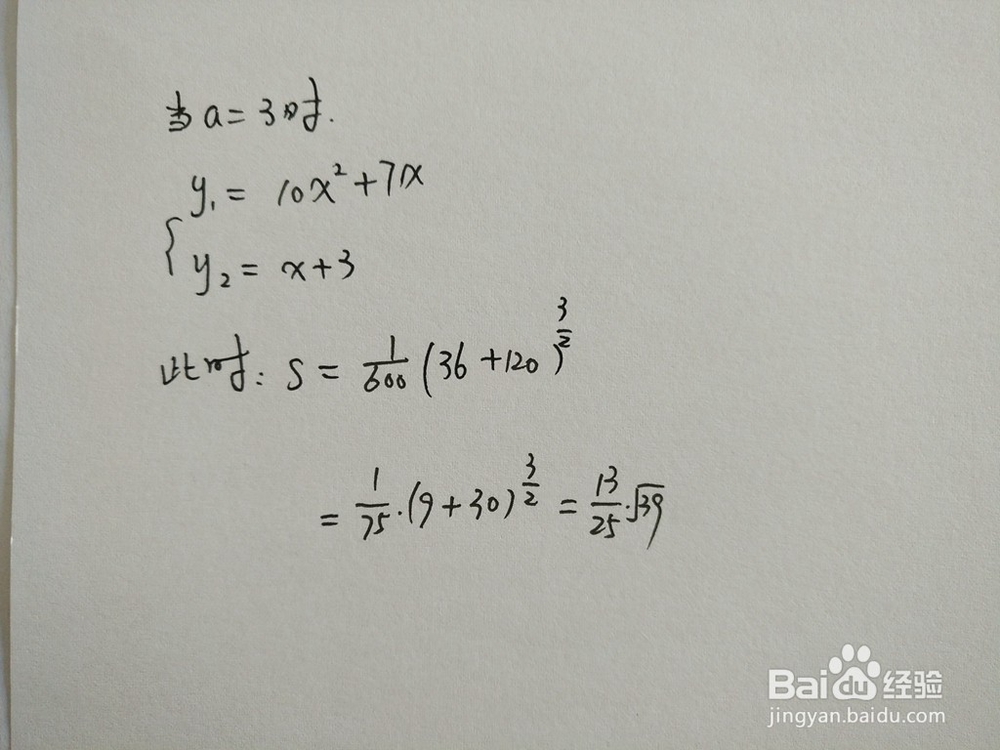 当a=3时.
y₁= 10x²+7x
{
y₂= x+3
此时: S = 1/600 (36+120)^(3/2)
= 1/75·(9+30)^(3/2) = 13/25·√39
Baidu经验
jingyan.baidu.com